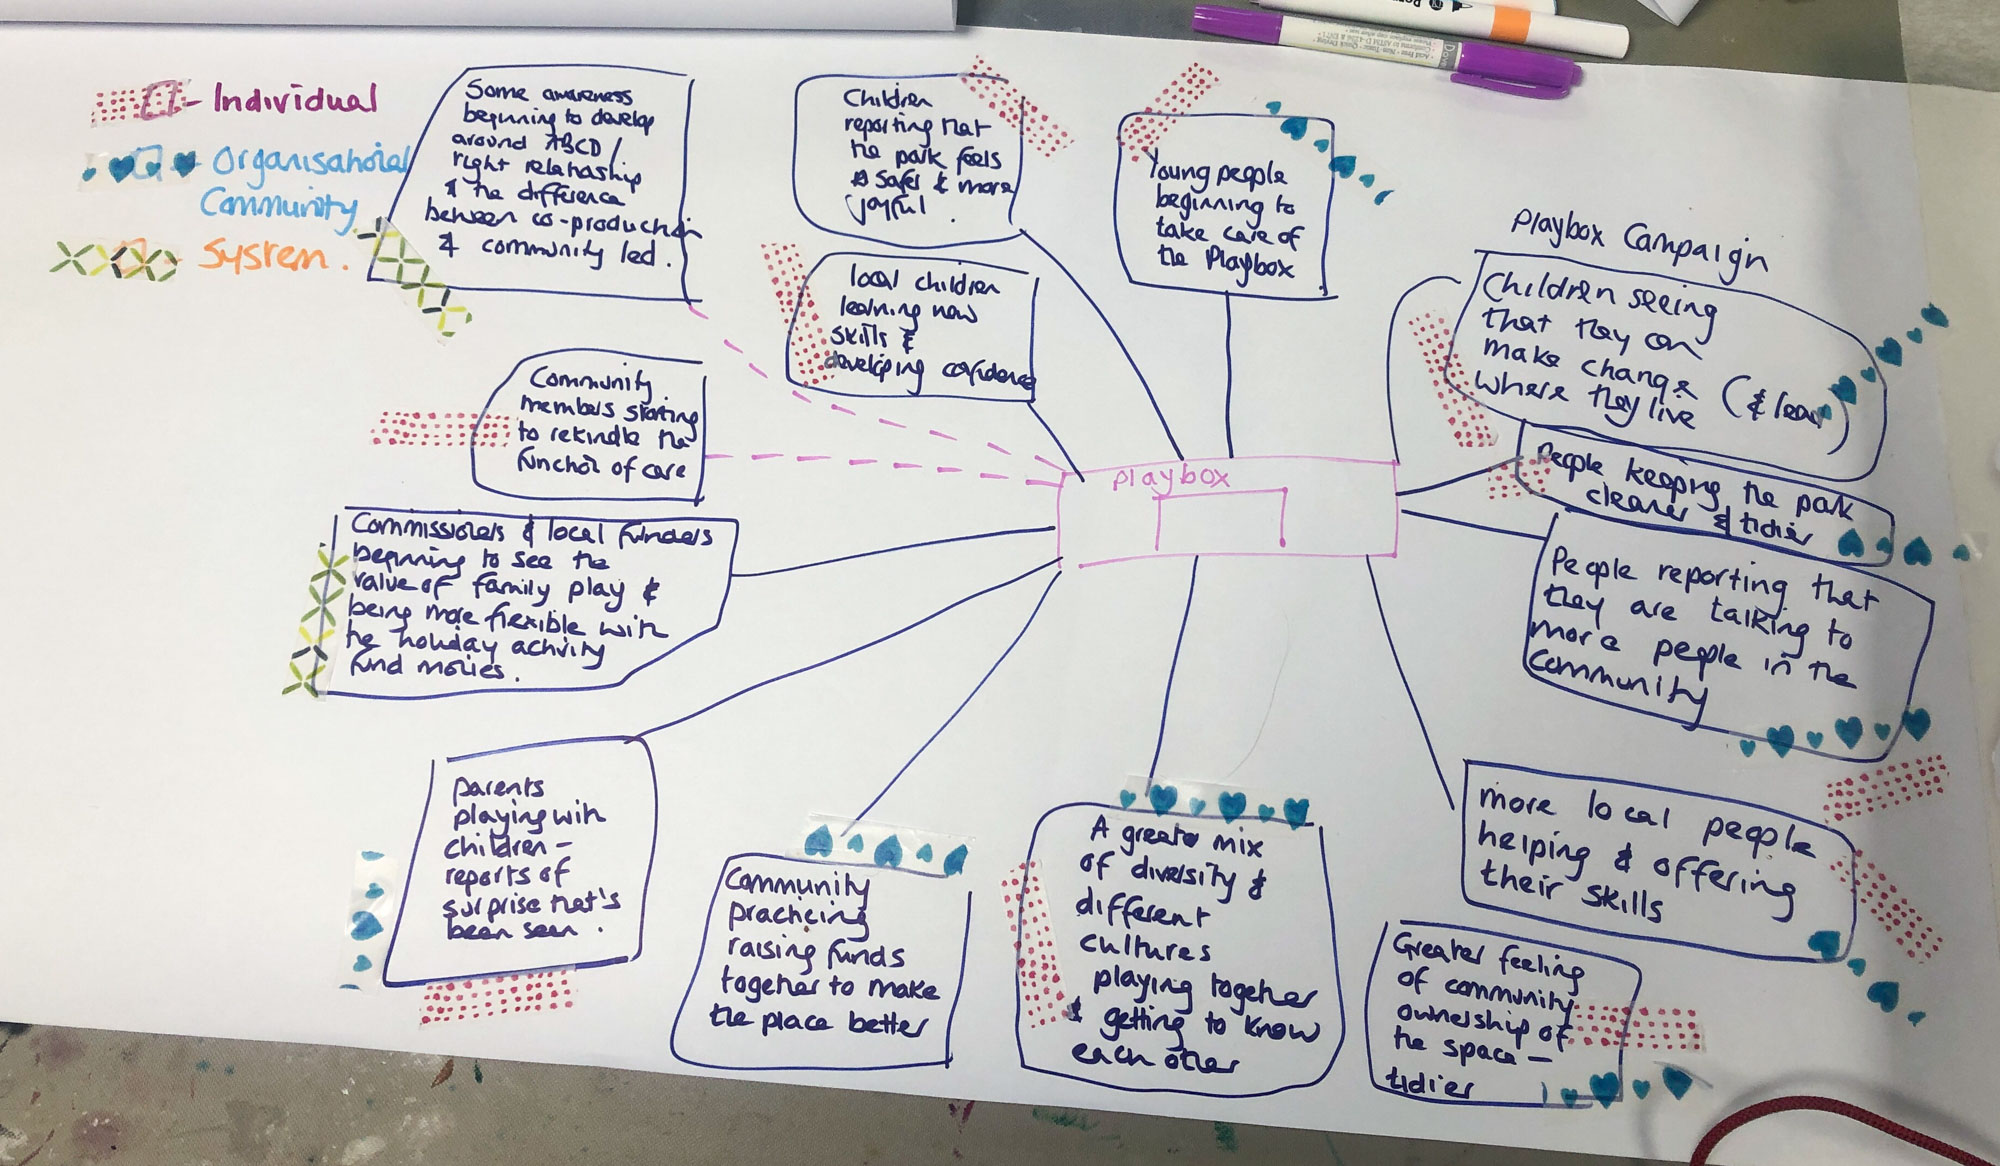 - Individual
- Organisational
Community
- System.
Some awareness
beginning to develop
around ABCD /
right relationship
& the difference
between co-production
& community led.
Children
reporting that
the park feels
safer & more
joyful.
Young people
beginning to
take care of
the Playbox
local children
learning new
skills &
developing confidence
Playbox Campaign
Children seeing
that they can
make change
where they live
(& learn)
Community
members starting
to rekindle the
function of care
People keeping the park
cleaner & tidier
playbox
Commissioners & local funders
beginning to see the
value of family play &
being more flexible with
the holiday activity
fund monies.
People reporting that
they are talking to
more people in the
community
parents
playing with
children -
reports of
surprise that's
been seen.
Community
practicing
raising funds
together to make
the place better
A greater mix
of diversity &
different
cultures
playing together
& getting to know
each other
more local people
helping & offering
their skills
Greater feeling
of community
ownership of
the space -
tidier